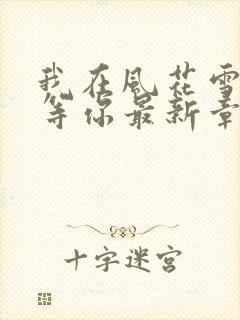 我在風花雪
等你最新章
十字迷宫